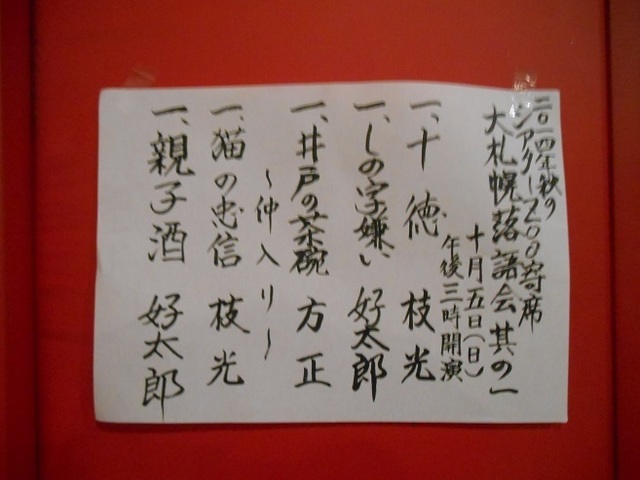 二〇一四年秋の
シアターZOO寄席
大札幌落語会其の一
十月五日(日)
午後三時開演
一、十徳 枝光
一、しの字嫌い 好太郎
一、井戸の茶碗 方正
~仲入り~
一、猫の忠信 枝光
一、親子酒 好太郎